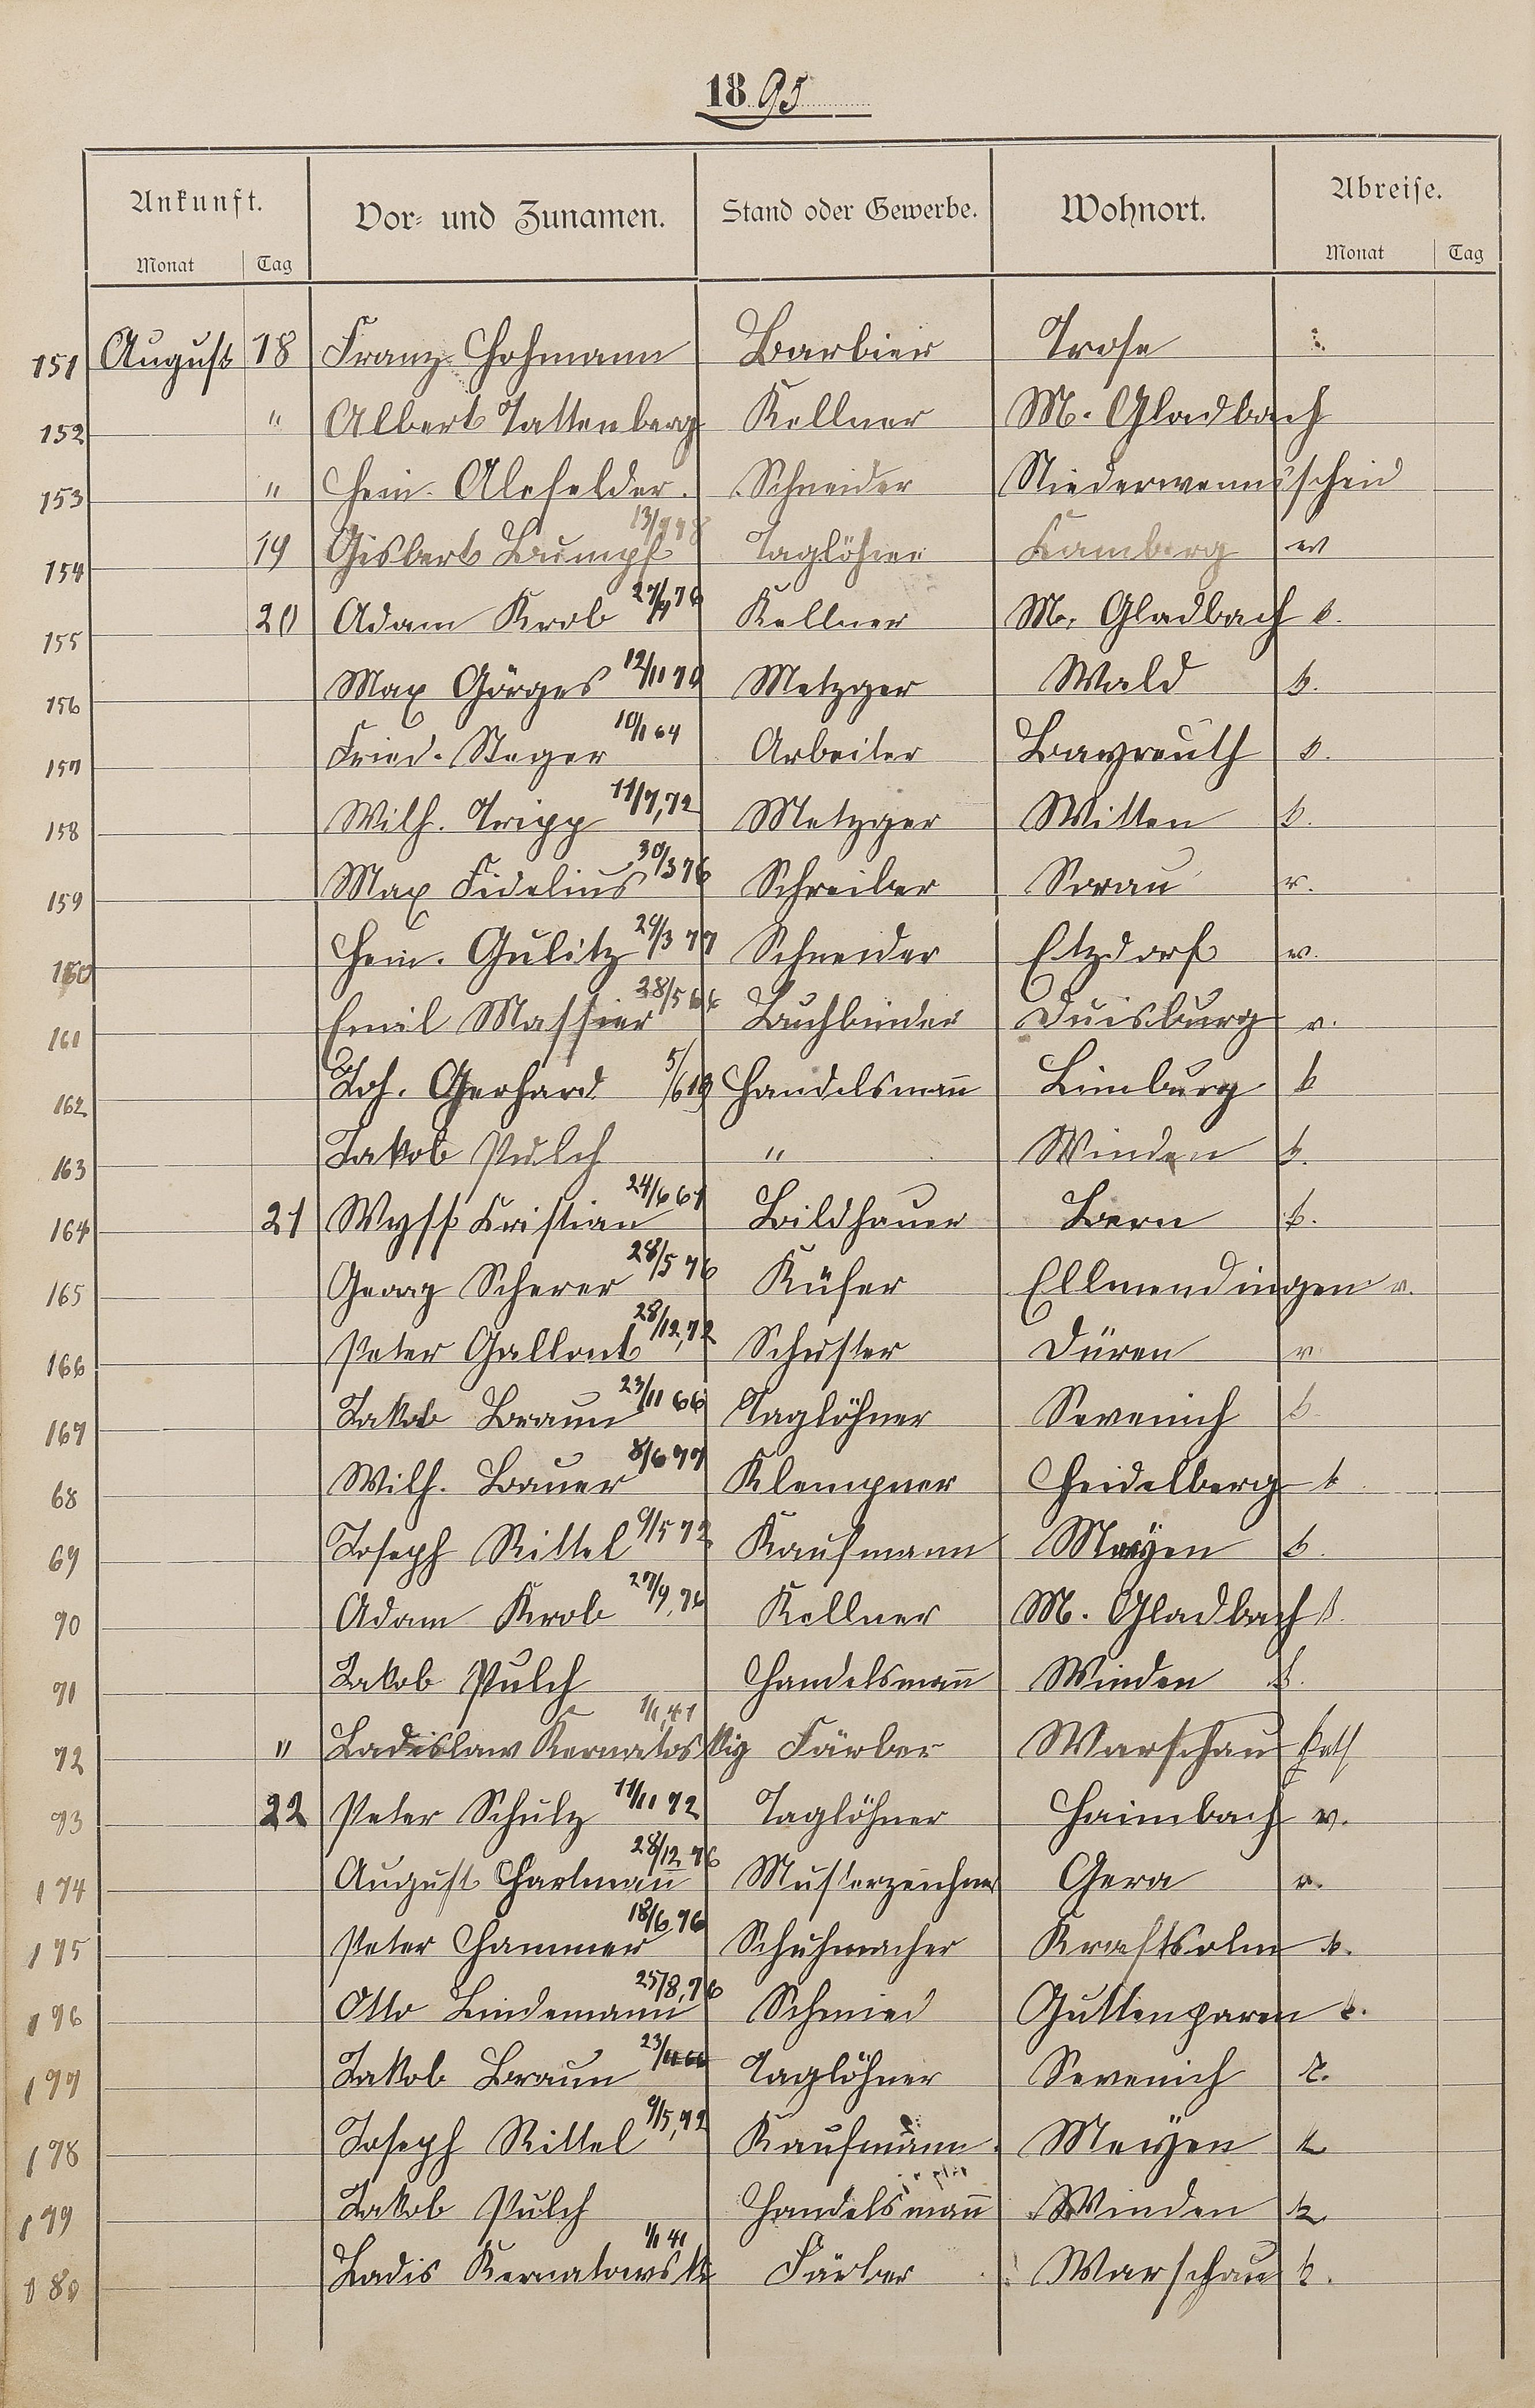 1895
Ankunft. Vor- und Zunamen. Stand oder Gewerbe. Wohnort. Abreise.
Monat Tag Monat Tag
151 August 18 Franz Hohmann Barbier Trose
152 " Albert Tattenberg Kellner M. Gladbach
153 " Hein. Alefelder. Schneider Niederwennscheid
154 19 Gisbert Lumpf Taglöhner Kamberg
155 20 Adam Krob 27/9 76 Kellner M. Gladbach k.
156 Max Görges 12/11 70 Metzger Wald k.
157 Fried. Steger 10/1 64 Arbeiter Bayreuth
158 Wilh. Tripp 11/7, 72 Metzger Witten k.
159 Max Fidelius 30/3 76 Schreiber Sorau v.
160 Hein. Gulitz 29/3 77 Schneider Etzdorf v.
161 Emil Massier 28/5 Buchbinder Duisburg v.
162 Joh. Gerhard 5/6 Handelsmann Limburg k
163 Jakob Pulch " Winden k.
164 21 Wyss Kristian 24/6 61 Bildhauer Bern k.
165 Georg Scherer 28/5 76 Küfer Ellmendingen v.
166 Peter Gallont 28/12, 72 Schuster Düren v
167 Jakob Braun 23/11 66 Taglöhner Sevenich k
68 Wilh. Bauer 8/6 77 Klempner Heidelberg k
69 Joseph Rittel 9/5 72 Kaufmann Mayen k.
70 Adam Krob 27/9, 76 Kellner M. Gladbach k
71 Jakob Pulch Handelsmann Winden k.
72 " Ladislaw Kernatoskig 1/1, 41 Färber Warschau kath
73 22 Peter Schulz 11/11 72 Taglöhner Haimbach v.
174 August Hartmann 28/12 76 Musterzeichner Gera v.
175 Peter Hammer 18/6, 76 Schuhmacher Kraftsolm k.
176 Otto Lindemann 25/8, 76 Schmied Guttenparen k.
177 Jakob Braun 23/11 66 Taglöhner Sevenich k.
178 Joseph Rittel 9/5, 72 Kaufmann Mayen k
179 Jakob Pulch Handelsmann Winden k
180 Ladis Kernatowski 1/1 41 Färber Warschau k.